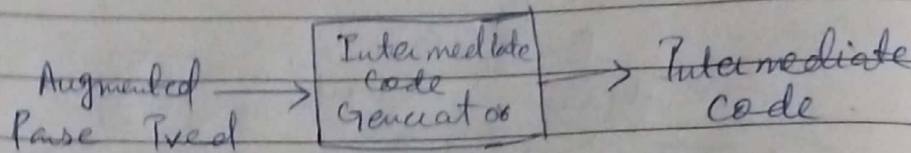 Augmented
Parse Tree
Intermediate
Code
Generator
Intermediate
Code